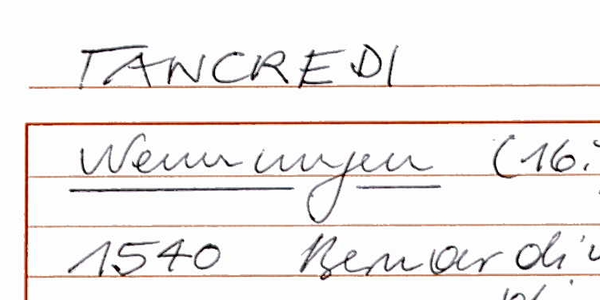 TANCREDI
Nennungen (16.
1540 Bernardi